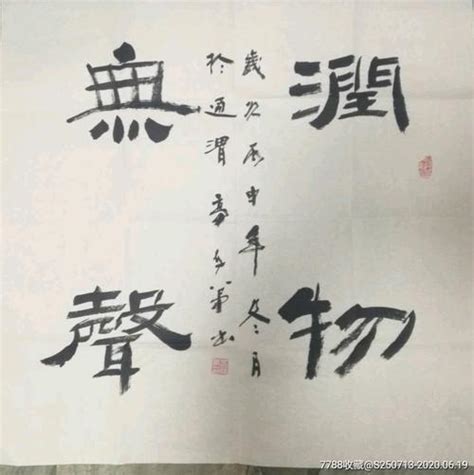 潤物
無聲
歲次申年冬月
於通渭高書
7788收藏@S250713-2020.06.19